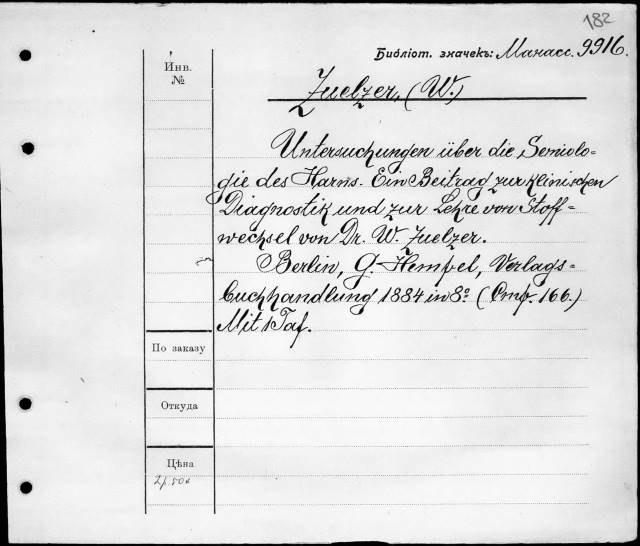 182
Библіот. значекъ: Манасс. 9916.
Инв.
№
Zuelzer, (W.)
Untersuchungen über die Semiolo-
gie des Harns. Ein Beitrag zur klinischen
Diagnostik und zur Lehre von Stoff-
wechsel von Dr. W. Zuelzer.
Berlin, G. Hempel, Verlags-
buchhandlung 1884 in 8º. (Стр. 166.)
Mit 1 Taf.
По заказу
Откуда
Цѣна
2 р. 50 к